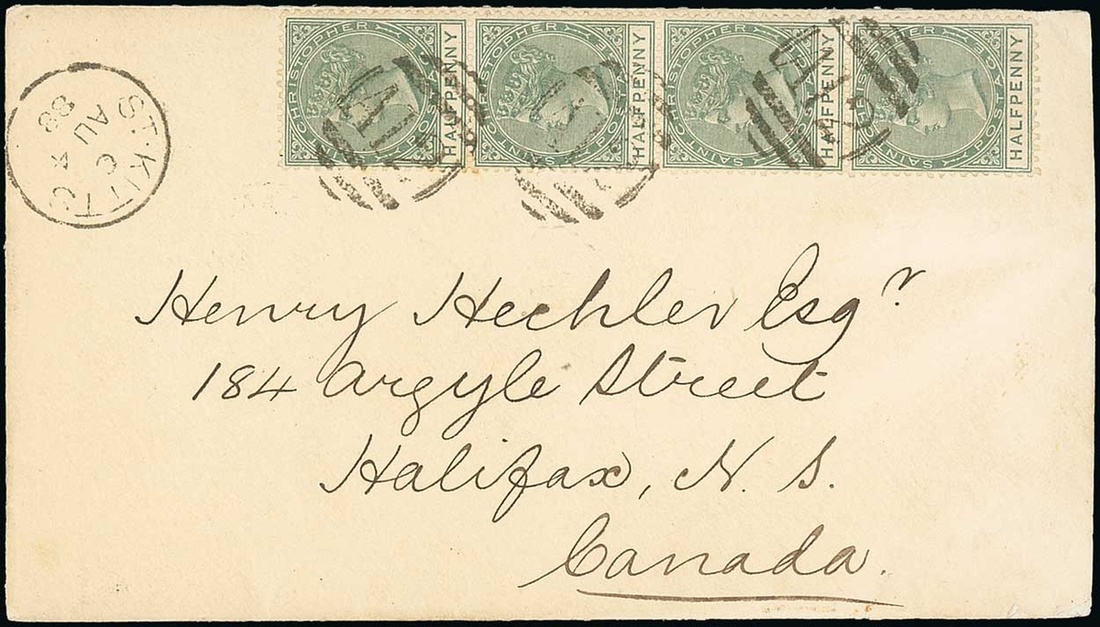 SAINT CHRISTOPHER POSTAGE HALFPENNY
SAINT CHRISTOPHER POSTAGE HALFPENNY
SAINT CHRISTOPHER POSTAGE HALFPENNY
SAINT CHRISTOPHER POSTAGE HALFPENNY
A12
A12
ST. KITTS
C
AU
88
Henry Hechler Esqr
184 Argyle Street
Halifax, N. S.
Canada.